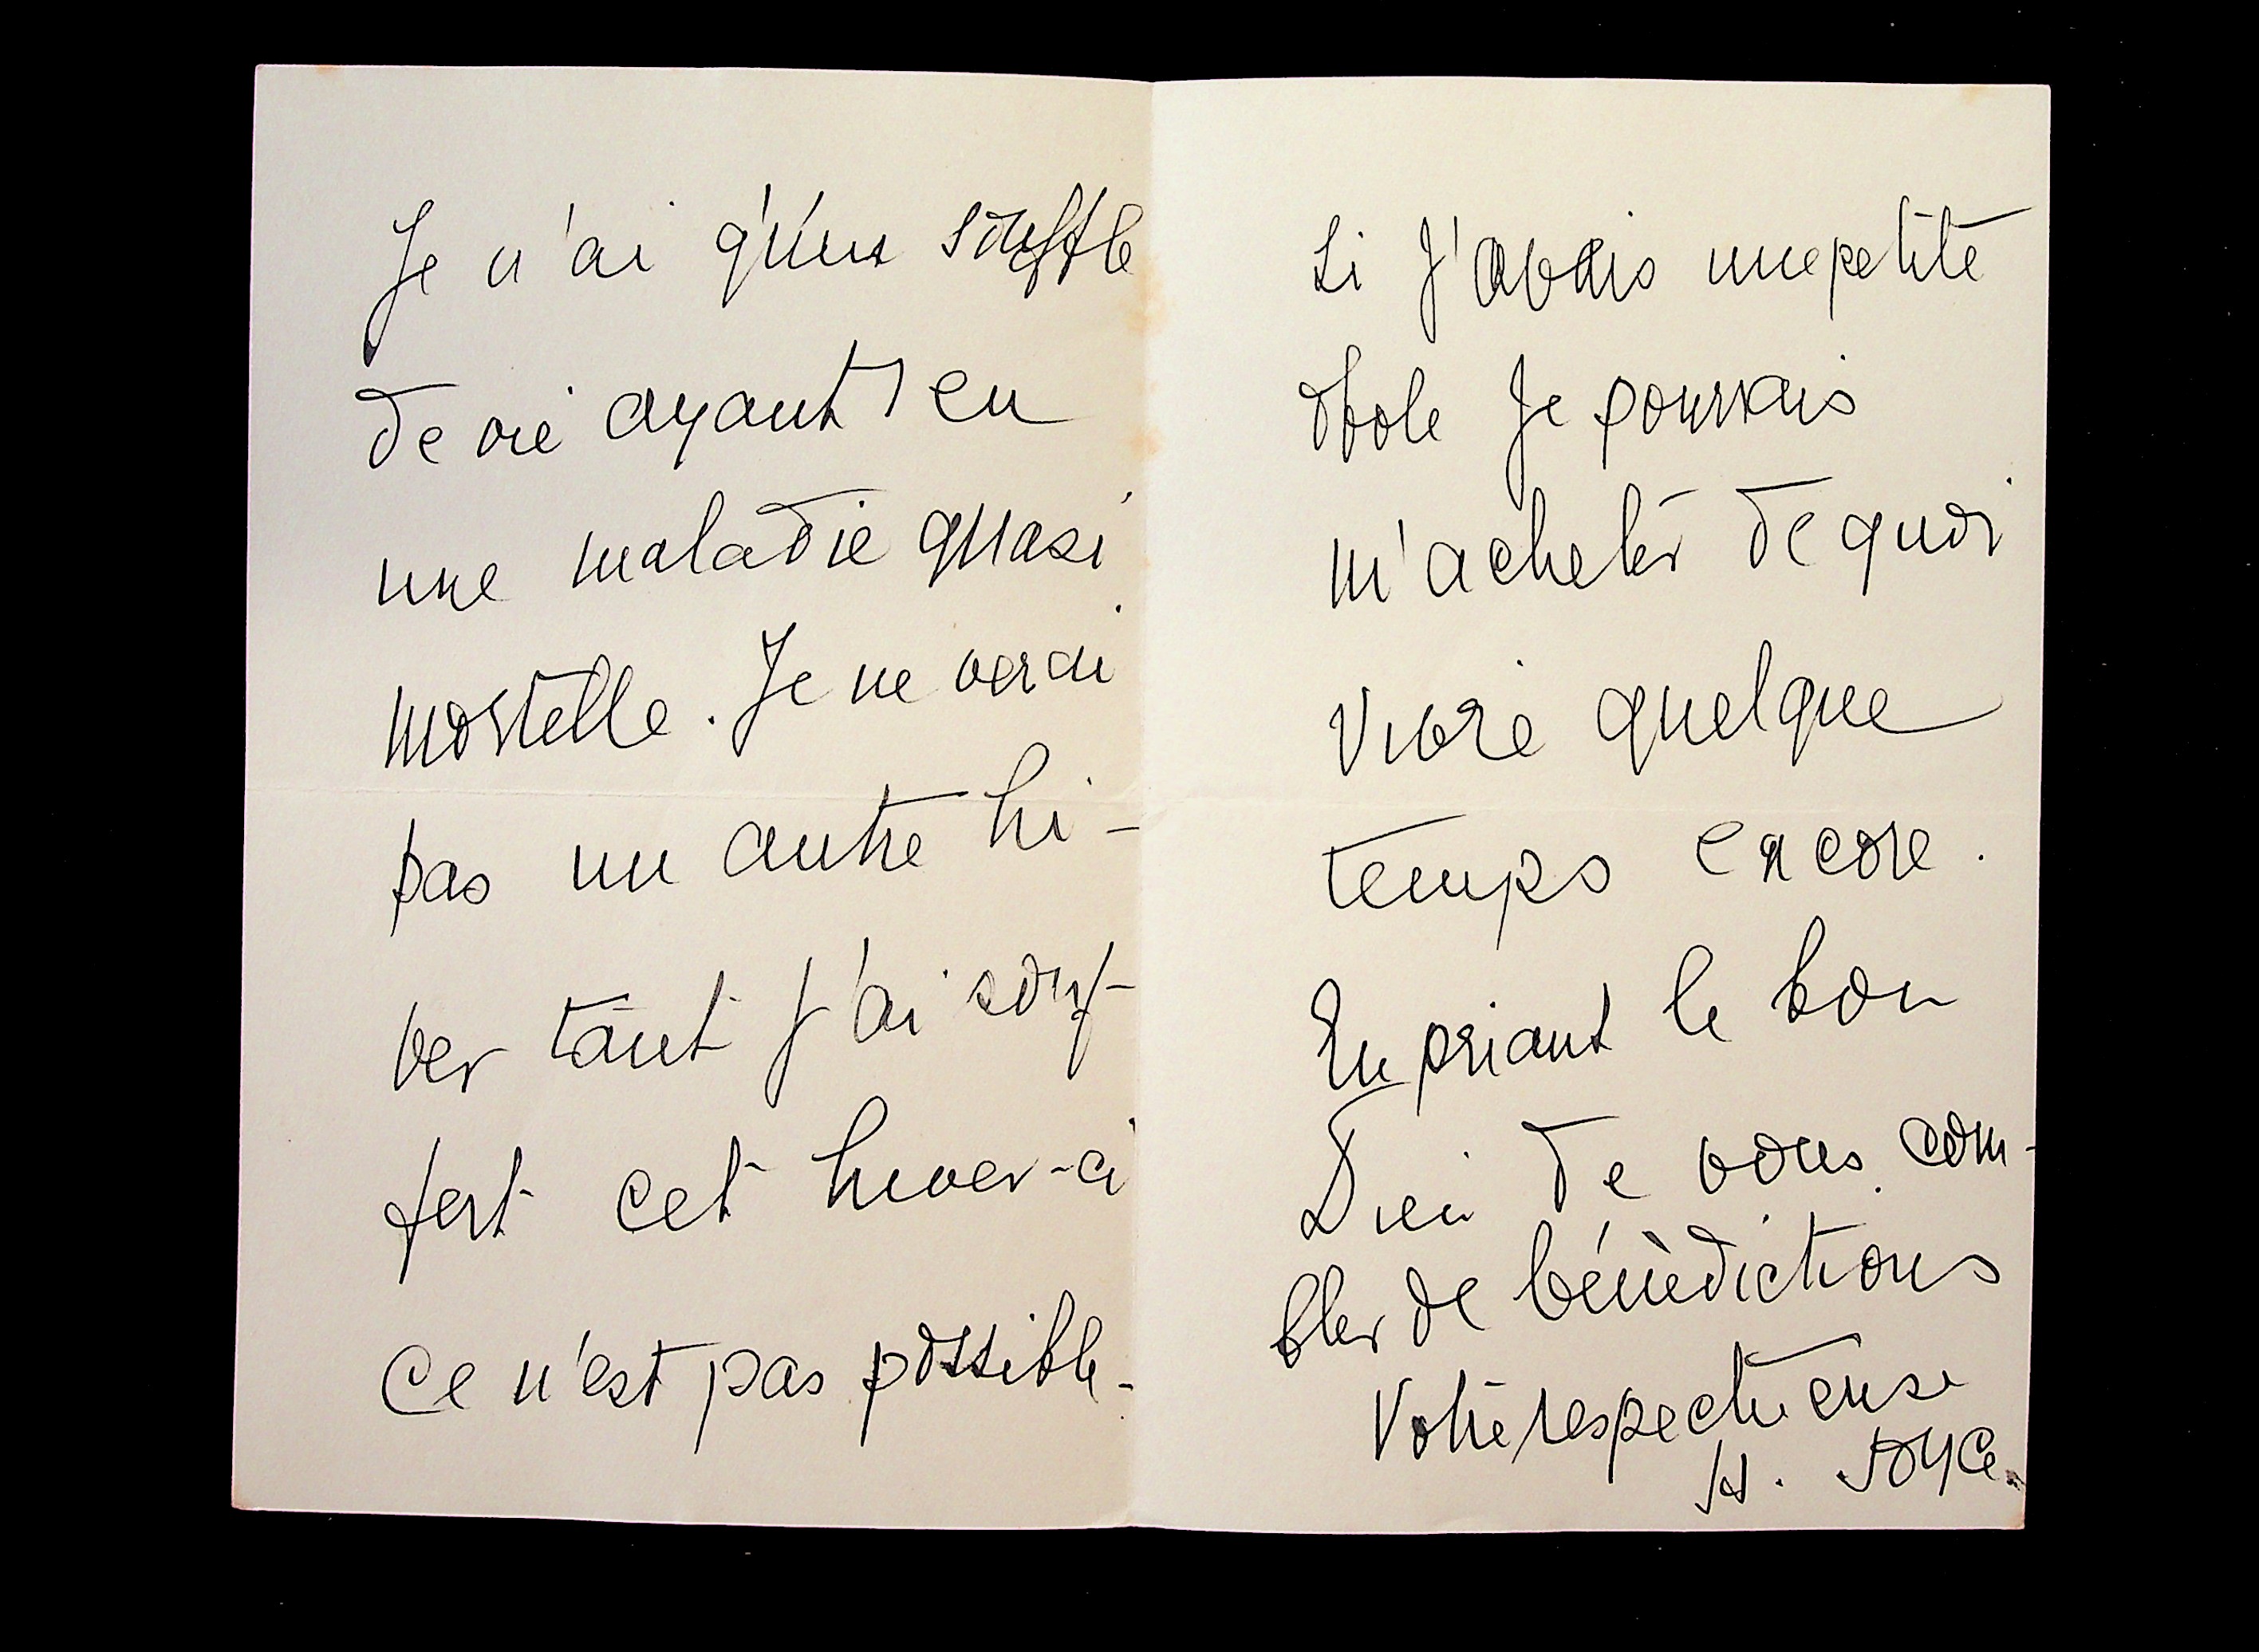 Je n'ai qu'un souffle
de vie ayant eu
une maladie quasi
mortelle. Je ne verai
pas un autre hi-
ver tant j'ai souf-
fert cet hiver-ci
Ce n'est pas possible.
Si j'avais une petite
obole Je pourrais
m'acheter de quoi
vivre quelque
temps encore.
En priant le bon
Dieu de vous com-
bler de bénèdictions
Votre respectueuse
H. Joyce.